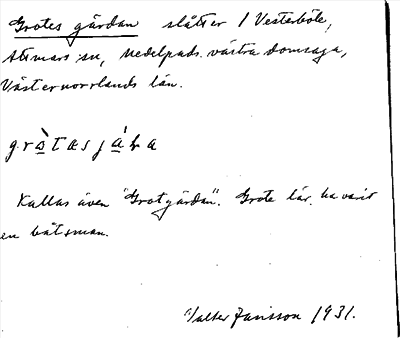 Grotes gärdan slåtter i Vesterböle,
Attmars sn, Medelpads västra domsaga,
Västernorrlands län.
Kallas även "Grotgärdan". Grote lär ha varit
en båtsman.
Valter Jansson 1931.